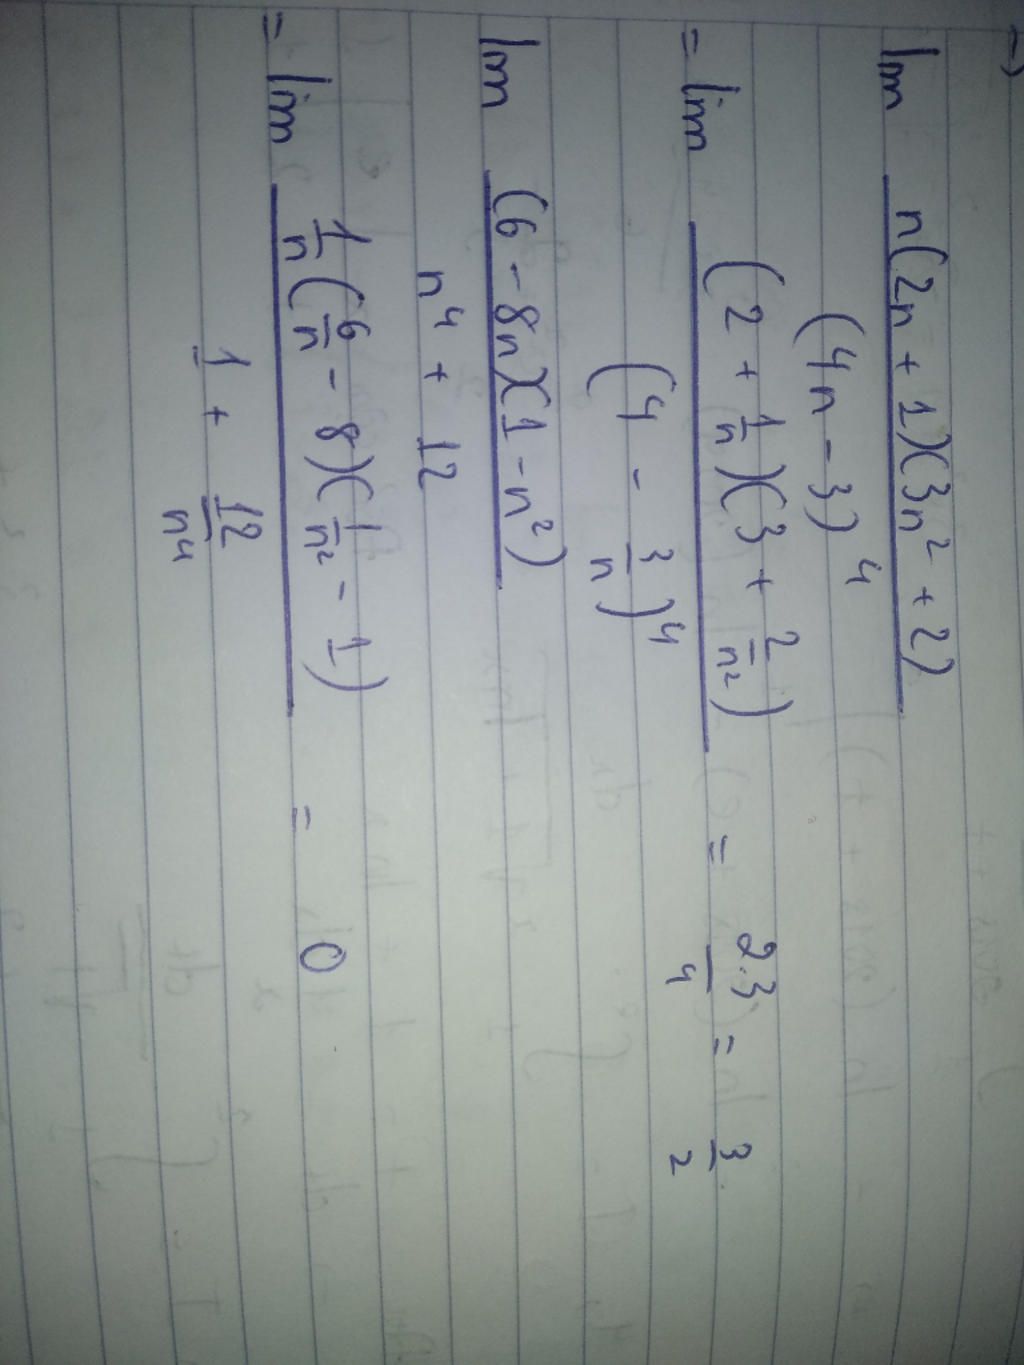 lim n(2n + 1)(3n² + 2)
(4n - 3)⁴
= lim (2 + 1/n)(3 + 2/n²) / (4 - 3/n)⁴ = 2.3/4 = 3/2
lim (6 - 8n)(1 - n²)
n⁴ + 12
= lim 1/n(6/n - 8)(1/n² - 1) / 1 + 12/n⁴ = 0